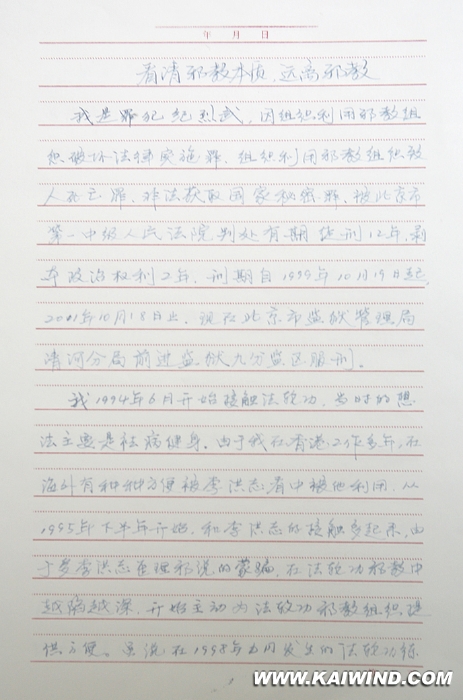 年 月 日
看清邪教本质、远离邪教
我是罪犯纪烈武,因组织利用邪教组
织破坏法律实施罪、组织利用邪教组织致
人死亡罪、非法获取国家秘密罪、被北京市
第一中级人民法院判处有期徒刑12年,剥
夺政治权利2年、刑期自1999年10月19日起
2011年10月18日止,现在北京市监狱管理局
清河分局前进监狱九分监区服刑。
我1994年6月开始接触法轮功、当时的想
法主要是祛病健身。由于我在香港工作多年,在
海外有种种方便被李洪志看中被他利用。从
1995年下半年开始,和李洪志的接触多起来,由
于受李洪志歪理邪说的蒙骗,在法轮功邪教中
越陷越深,开始主动为法轮功邪教组织提
供方便。 在1998年 月发生的法轮功
WWW.KAIWIND.COM